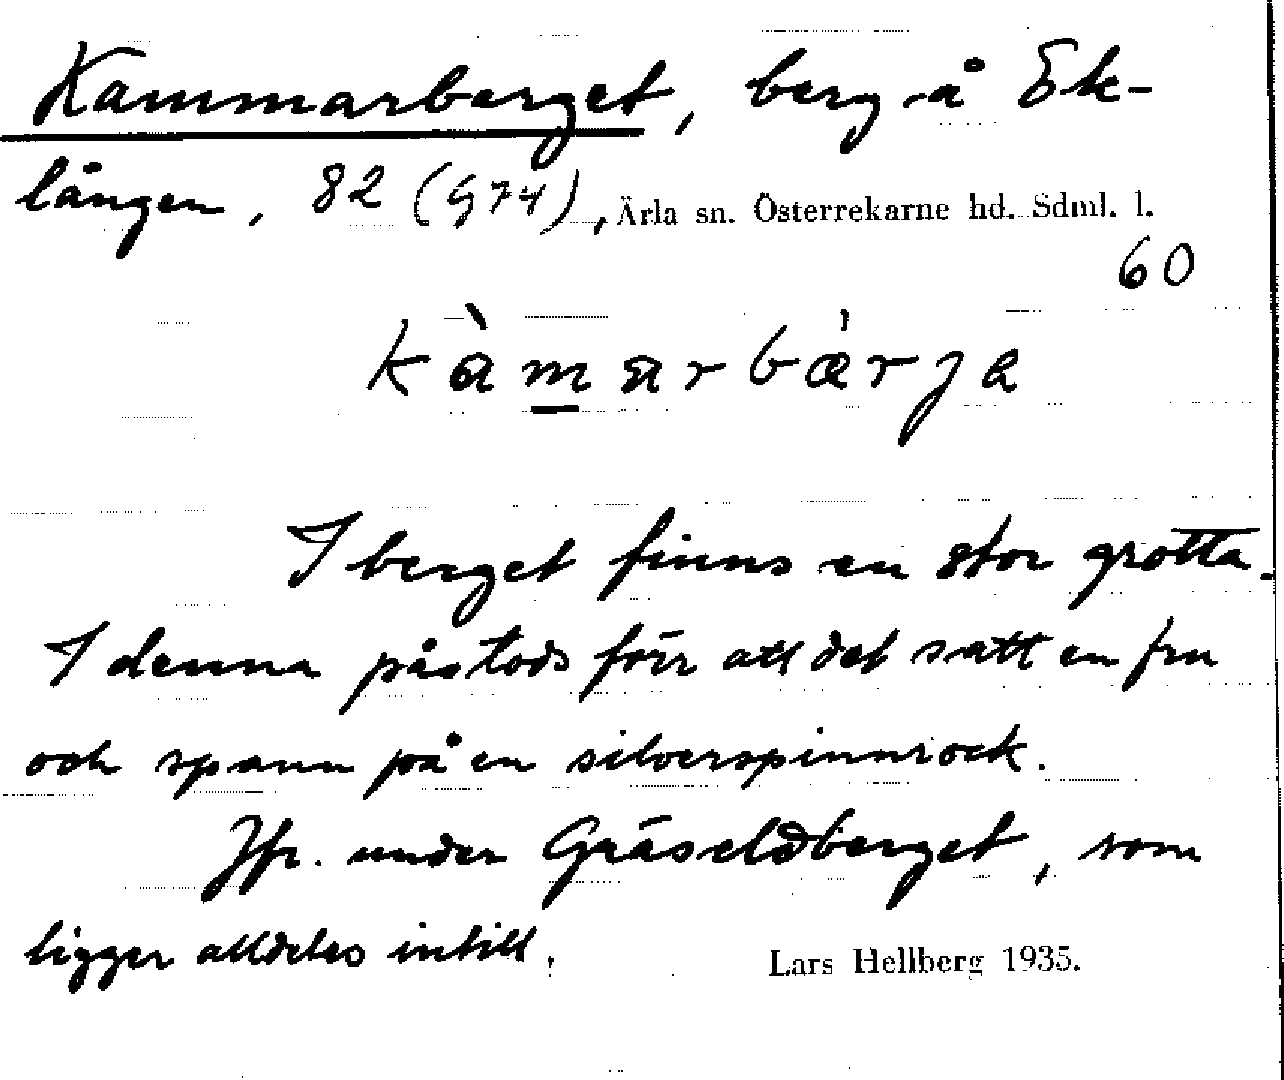 Kammarberget, berg å Ek-
lången, 82 (G74), Ärla sn. Österrekarne hd. Sdml. l.
60
kàmarbærja
I berget finns en stor grotta.
I denna påstods förr att det satt en fru
och spann på en silverspinnrock.
Jfr. under Gräseldberget, som
ligger alldeles intill.
Lars Hellberg 1935.